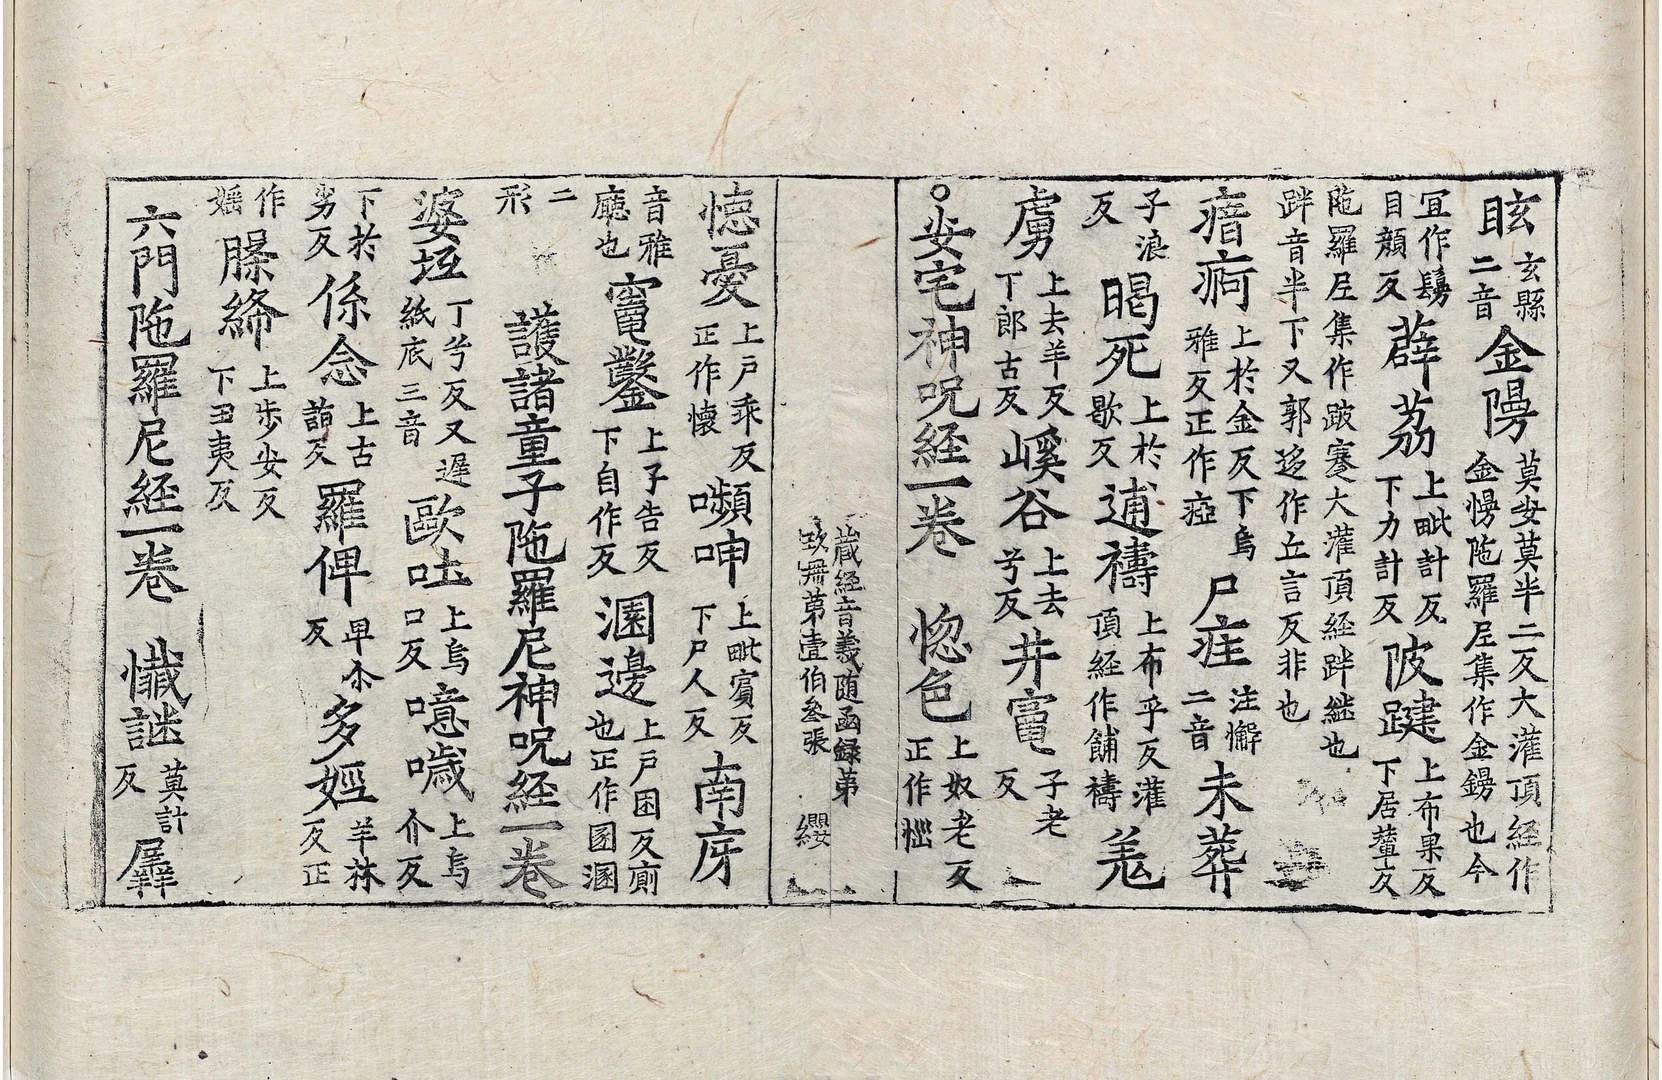 眩玄縣二音金䦽莫安莫半二反大灌頂經作金慢陁羅尼集作金鏝也今
宜作鬘目顏反薜荔上毗計反下力計反陂踺上布果反下居輦反
陁羅尼集作跛蹇大灌頂經跘継也跘音半下又郭迻作丘言反非也
瘖痾上於金反下烏雅反正作瘂尸疰注懈二音未葬
子浪反暍死上於歇反逋禱上布乎反灌頂經作餔禱羌
虜上去羊反丁郎古反嵠谷上去兮反井竃子老反
○安宅神呪經一卷 惚色上奴老反正作㛴
蔵經音義随函録第玖冊第壹伯叄張 纓
懐憂上戸乖反正作懷嚬呻上毗賓反下尸人反南庌
音雅廳也竃鑿上子告反下自作反溷邊上戸困反廁也正作圂溷
二形 護諸童子陁羅尼神呪經一卷
婆坘丁兮反又遲紙底三音歐吐上烏口反噫噦上烏介反
下於劣反係念上古詣反羅俾卑尒反多婬羊林反正
作婬腜締上歩安反下丑夷反
六門陁羅尼經一卷 懺謎莫計反羼